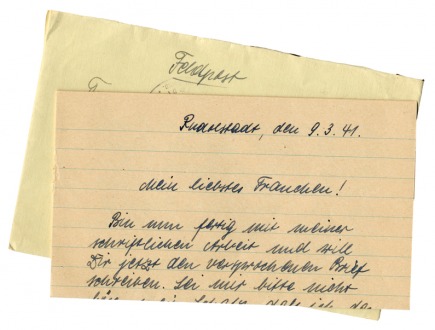 Feldpost
Rudolstadt, den 9.3.41.
Mein liebstes Frauchen!
Bin nun fertig mit meiner
schriftlichen Arbeit und will
Dir jetzt den versprochenen Brief
schreiben. Sei mir bitte nicht